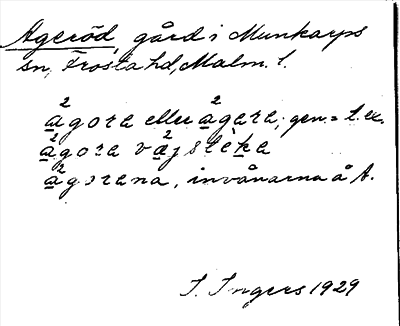 Ageröd, gård i Munkarps
sn, Frosta hd, Malm. l.
a²gora eller a²gara, gen. = t. ex.
a²gora va²jsteka
a²gorana, invånarna å A.
I. Ingers 1929